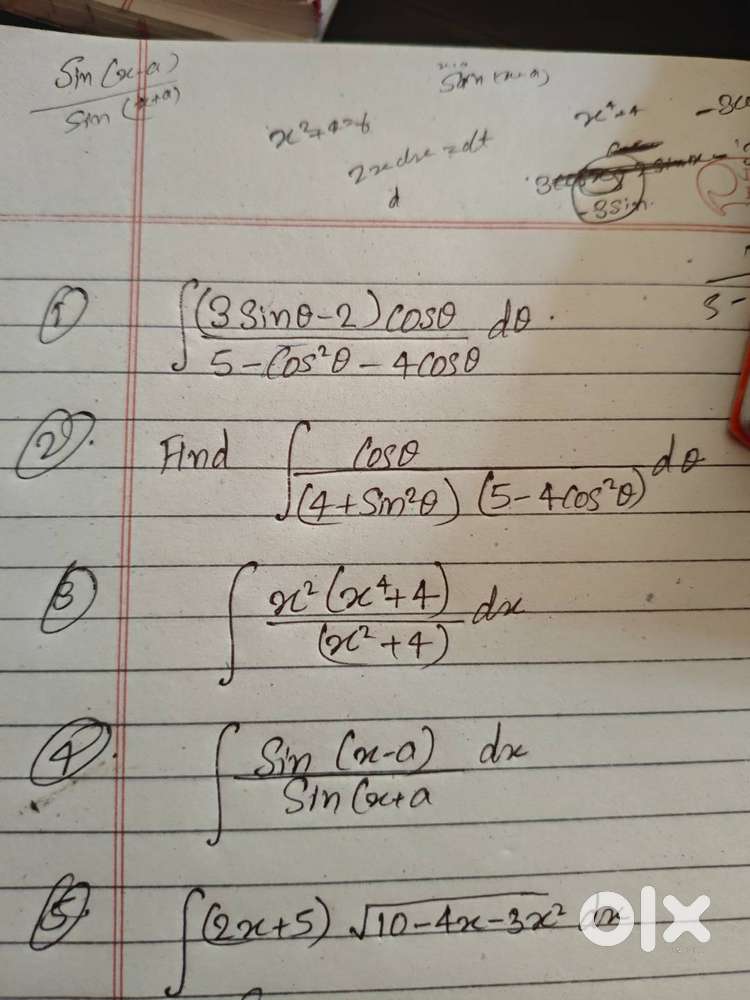 Sin(x-a)
Sin(x+a)
x²+4=t
2x dx = dt
d
x⁴+4
-3sin
① ∫ (3Sinθ-2)cosθ / 5-Cos²θ-4cosθ dθ.
②. Find ∫ cosθ / (4+Sin²θ) (5-4cos²θ) dθ
③ ∫ x²(x⁴+4) / (x²+4) dx
④. ∫ Sin(x-a) / Sin(x+a dx
⑤. ∫ (2x+5) √10-4x-3x² dx
olx